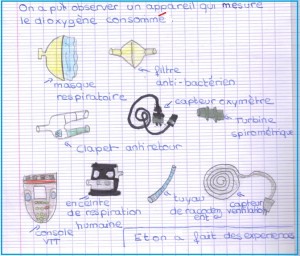 On a pu observer un appareil qui mesure
le dioxygène consommé :
masque
respiratoire
filtre
anti-bactérien
capteur oxymètre
turbine
spirométrique
clapet antiretour
console
VTT
enceinte
de respiration
humaine
tuyau
de raccordem
ent
capteur
ventilation
Et on a fait des expériences